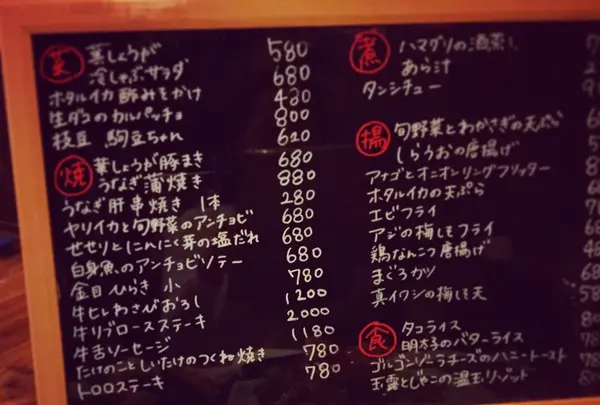 菜 葉しょうが 580
冷しゃぶサラダ 680
ホタルイカ酢みそかけ
生ダコのカルパッチョ 800
枝豆 駒豆ちゃん 620
焼 葉しょうが豚まき 680
うなぎ蒲焼き 880
うなぎ肝串焼き 1本 280
ヤリイカと旬野菜のアンチョビ 680
せせりとにんにく芽の塩だれ 680
白身魚のアンチョビソテー 680
金目ひらき 小 780
牛ヒレわさびおろし 1200
牛リブロースステーキ 2000
牛舌ソーセージ 1180
たけのことしいたけのつくね焼き 780
トロロステーキ 780
煮 ハマグリの酒蒸し
あら汁
タンシチュー
揚 旬野菜とわかさぎの天ぷら
しらうおの唐揚げ
アナゴとオニオンリングフリッター
ホタルイカの天ぷら
エビフライ
アジの梅しそフライ
鶏なんこつ唐揚げ
まぐろカツ
真イワシの梅しそ天
食 タコライス
明太子のバターライス
ゴルゴンゾーラチーズのハニートースト
玉露とじゃこの温玉リゾット